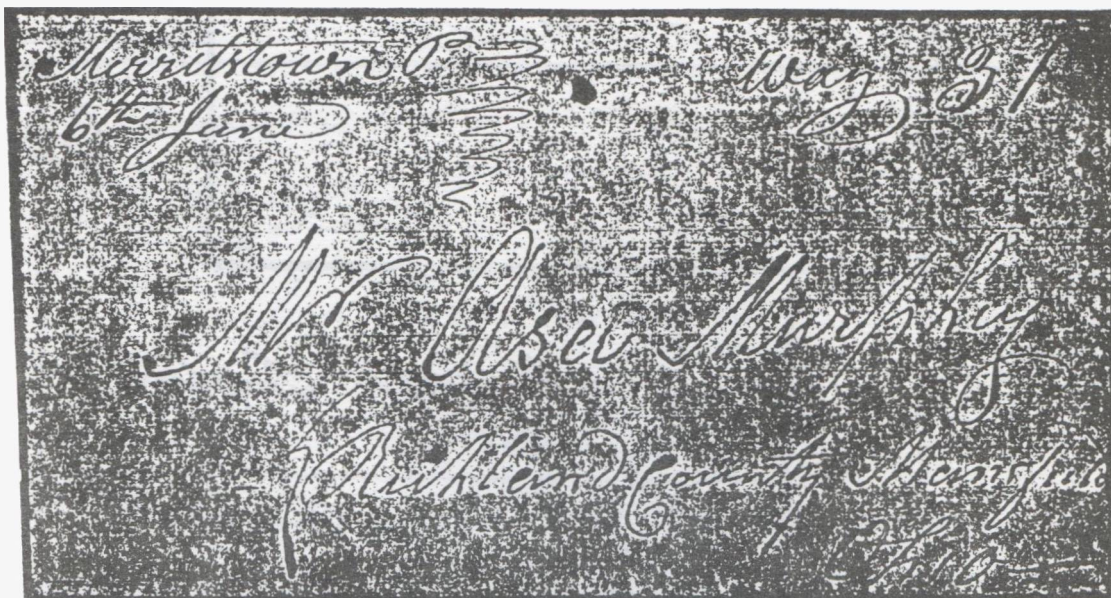 Merrittstown P
6th June
Way 31
Mr Asa Murphey
Richland County Mansfield
Ohio